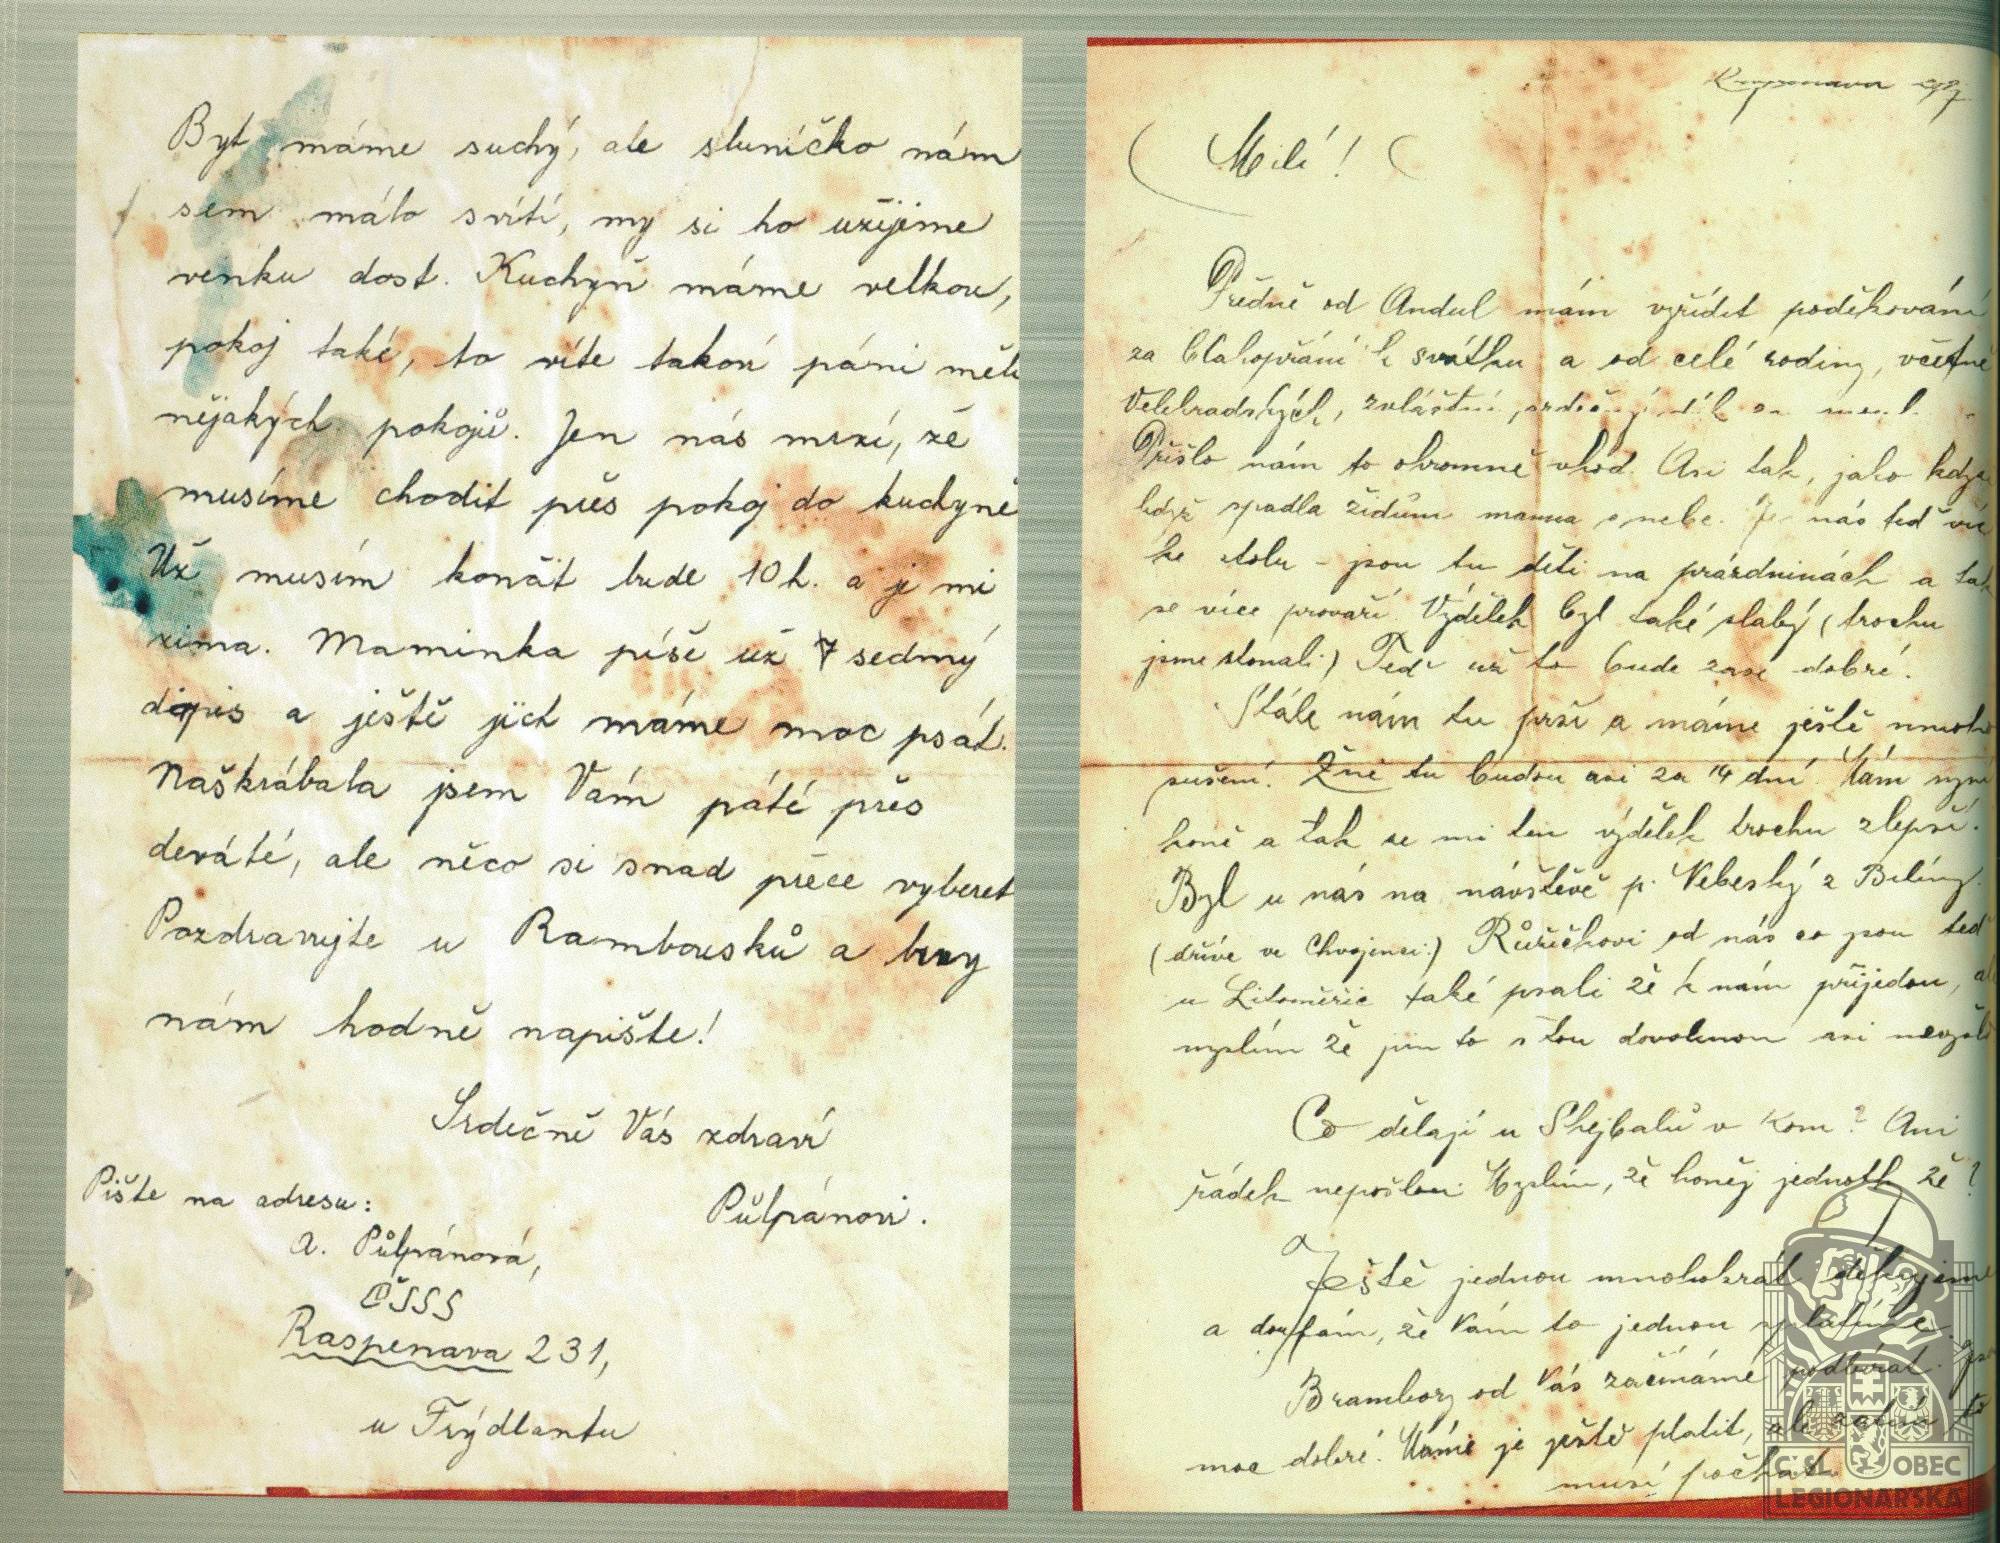 Byt máme suchý, ale sluníčko nám
sem málo svítí, my si ho užijeme
venku dost. Kuchyň máme velkou,
pokoj také, to víte takoví páni měli
nějakých pokojů. Jen nás mrzí, že
musíme chodit přes pokoj do kuchyně
Už musím končit bude 10 h. a je mi
zima. Maminka píše už 7 sedmý
dopis a ještě jich máme moc psát.
Naškrábala jsem Vám páté přes
deváté, ale něco si snad přece vyberet
Pozdravujte u Rambousků a brzy
nám hodně napište!
Srdečně Vás zdraví
Půlpánovi.
Pište na adresu:
A. Půlpánová,
ČSSS
Raspenava 231,
u Frýdlantu
Raspenava
Milí!
Předně od Andul mám vyřídit poděkování
za blahopřání k svátku a od celé rodiny, včetně
Velehradských, zvláštní srdečný dík
Přišlo nám to ohromně vhod. Asi tak, jako kdysi
když spadla židům manna s nebe. Je nás teď víc
ke stolu - jsou tu děti na prázdninách a tak
se více provaří. Výdělek byl také slabý (trochu
jsme stonali.) Teď už to bude zase dobré.
Stále nám tu prší a máme ještě mnoho
sušení. Žně tu budou asi za 14 dní. Mám nyní
koně a tak se mi ten výdělek trochu zlepší.
Byl u nás na návštěvě p. Nebeský z Bíliny.
(dříve ve Chvojenci.) Růžičkovi od nás co jsou teď
u Litoměřic také psali že k nám přijedou, ale
myslím že jim to s tou dovolenou asi nevyšlo
Co dělají u Shejbalů v Kom? Ani
řádek nepošlou. Myslím, že honěj jednoth že?
Ještě jednou mnohokrát děkujeme
a doufám, že Vám to jednou splatíme.
Brambory od Vás začínáme podbírat. Jsou
moc dobré. Máme je ještě platit, ale zatím to
musí počkat.
ČSL. OBEC
LEGIONÁŘSKÁ